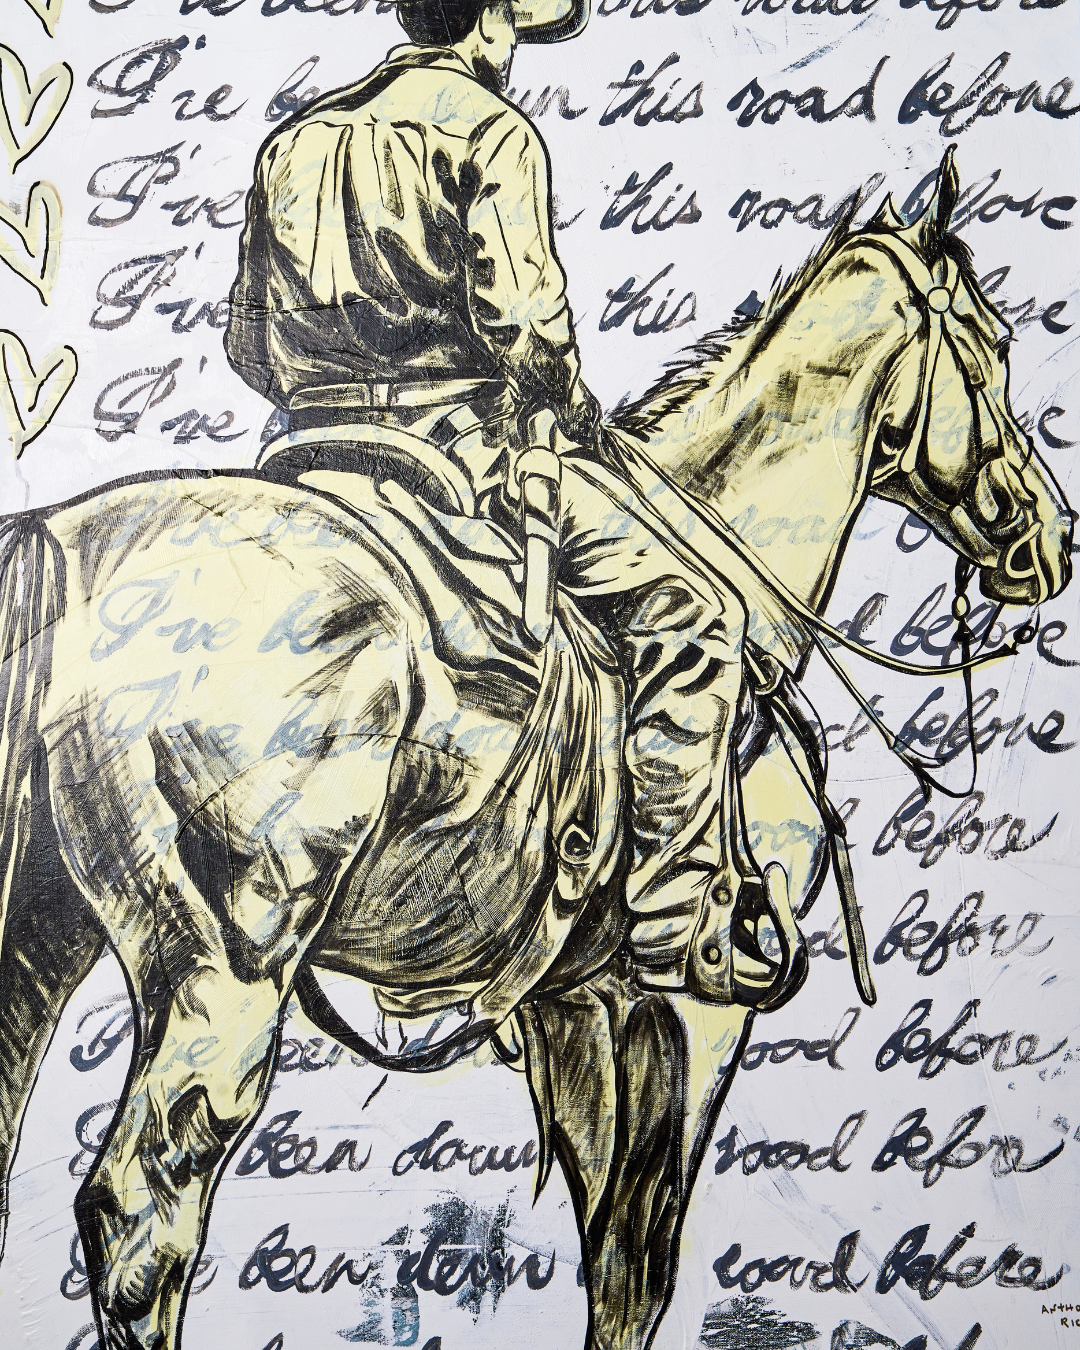 I've been down this road before
I've been down this road before
I've this road before
I've this before
I've road before
I've been this road
I've been down road before
I've been down road before
road before
road before
I've been down road before
been down road before
been down road before
ANTHO
RIC